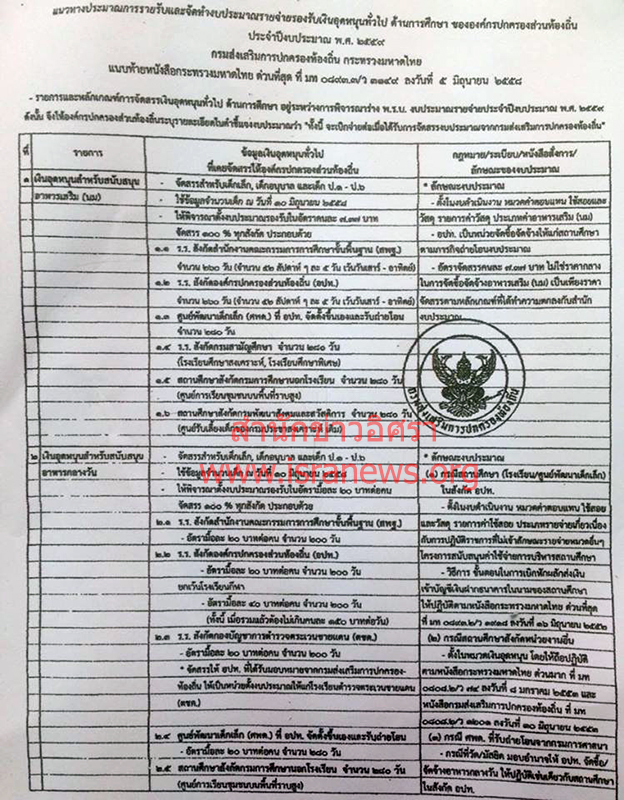 แนวทางประมาณการรายรับและจัดทำงบประมาณรายจ่ายรองรับเงินอุดหนุนทั่วไป ด้านการศึกษา ขององค์กรปกครองส่วนท้องถิ่น
ประจำปีงบประมาณ พ.ศ. ๒๕๕๙
กรมส่งเสริมการปกครองท้องถิ่น กระทรวงมหาดไทย
แนบท้ายหนังสือกระทรวงมหาดไทย ด่วนที่สุด ที่ มท ๐๘๙๓.๓/ว ๓๑๔๙ ลงวันที่ ๕ มิถุนายน ๒๕๕๘
- รายการและหลักเกณฑ์การจัดสรรเงินอุดหนุนทั่วไป ด้านการศึกษา อยู่ระหว่างการพิจารณาร่าง พ.ร.บ. งบประมาณรายจ่ายประจำปีงบประมาณ พ.ศ. ๒๕๕๙
ดังนั้น จึงให้องค์กรปกครองส่วนท้องถิ่นระบุรายละเอียดในคำชี้แจงงบประมาณว่า "ทั้งนี้ จะเบิกจ่ายต่อเมื่อได้รับการจัดสรรงบประมาณจากกรมส่งเสริมการปกครองท้องถิ่น"
ที่ รายการ ข้อมูลเงินอุดหนุนทั่วไป กฎหมาย/ระเบียบ/หนังสือสั่งการ/
ที่เคยจัดสรรให้องค์กรปกครองส่วนท้องถิ่น ลักษณะของงบประมาณ
๑ เงินอุดหนุนสำหรับสนับสนุน - จัดสรรสำหรับเด็กเล็ก, เด็กอนุบาล และเด็ก ป.๑ - ป.๖ * ลักษณะงบประมาณ
อาหารเสริม (นม) - ใช้ข้อมูลจำนวนเด็ก ณ วันที่ ๑๐ มิถุนายน ๒๕๕๘ - ตั้งในงบดำเนินงาน หมวดค่าตอบแทน ใช้สอยและ
- ให้พิจารณาตั้งงบประมาณรองรับในอัตราคนละ ๗.๓๗ บาท วัสดุ รายการค่าวัสดุ ประเภทค่าอาหารเสริม (นม)
จัดสรร ๑๐๐ % ทุกสังกัด ประกอบด้วย - อปท. เป็นหน่วยจัดซื้อจัดจ้างให้แก่สถานศึกษา
๑.๑ ร.ร. สังกัดสำนักงานคณะกรรมการการศึกษาขั้นพื้นฐาน (สพฐ.) ตามภารกิจถ่ายโอนงบประมาณ
จำนวน ๒๖๐ วัน (จำนวน ๕๒ สัปดาห์ ๆ ละ ๕ วัน เว้นวันเสาร์ - อาทิตย์) - อัตราจัดสรรคนละ ๗.๓๗ บาท ไม่ใช่ราคากลาง
๑.๒ ร.ร. สังกัดองค์กรปกครองส่วนท้องถิ่น (อปท.) ในการจัดซื้อจัดจ้างอาหารเสริม (นม) เป็นเพียงราคา
จำนวน ๒๖๐ วัน (จำนวน ๕๒ สัปดาห์ ๆ ละ ๕ วัน เว้นวันเสาร์ - อาทิตย์) จัดสรรตามหลักเกณฑ์ที่ได้ทำความตกลงกับสำนัก
๑.๓ ศูนย์พัฒนาเด็กเล็ก (ศพด.) ที่ อปท. จัดตั้งขึ้นเองและรับถ่ายโอน งบประมาณ
จำนวน ๒๘๐ วัน
๑.๔ ร.ร. สังกัดกรมสามัญศึกษา จำนวน ๒๘๐ วัน
(โรงเรียนศึกษาสงเคราะห์, โรงเรียนศึกษาพิเศษ)
๑.๕ สถานศึกษาสังกัดกรมการศึกษานอกโรงเรียน จำนวน ๒๘๐ วัน
(ศูนย์การเรียนชุมชนบนพื้นที่ราบสูง)
๑.๖ สถานศึกษาสังกัดกรมพัฒนาสังคมและสวัสดิการ จำนวน ๒๘๐ วัน
(ศูนย์รับเลี้ยงเด็กของกรมประชาสงเคราะห์เดิม)
กรมส่งเสริมการปกครองท้องถิ่น
สำนักข่าวอิศรา
www.isranews.org
๒ เงินอุดหนุนสำหรับสนับสนุน - จัดสรรสำหรับเด็กเล็ก, เด็กอนุบาล และเด็ก ป.๑ - ป.๖ * ลักษณะงบประมาณ
อาหารกลางวัน - ใช้ข้อมูลจำนวนเด็ก ณ วันที่ ๑๐ มิถุนายน ๒๕๕๘ (๑) กรณีสถานศึกษา (โรงเรียน/ศูนย์พัฒนาเด็กเล็ก)
- ให้พิจารณาตั้งงบประมาณรองรับในอัตรามื้อละ ๒๐ บาทต่อคน ในสังกัด อปท.
จัดสรร ๑๐๐ % ทุกสังกัด ประกอบด้วย - ตั้งในงบดำเนินงาน หมวดค่าตอบแทน ใช้สอย
๒.๑ ร.ร. สังกัดสำนักงานคณะกรรมการการศึกษาขั้นพื้นฐาน (สพฐ.) และวัสดุ รายการค่าใช้สอย ประเภทรายจ่ายเกี่ยวเนื่อง
- อัตรามื้อละ ๒๐ บาทต่อคน จำนวน ๒๐๐ วัน กับการปฏิบัติราชการที่ไม่เข้าลักษณะรายจ่ายหมวดอื่นๆ
๒.๒ ร.ร. สังกัดองค์กรปกครองส่วนท้องถิ่น (อปท.) โครงการสนับสนุนค่าใช้จ่ายการบริหารสถานศึกษา
- อัตรามื้อละ ๒๐ บาทต่อคน จำนวน ๒๐๐ วัน - วิธีการ ขั้นตอนในการเบิกหักผลักส่งเงิน
ยกเว้นโรงเรียนกีฬา เข้าบัญชีเงินฝากธนาคารในนามของสถานศึกษา
- อัตรามื้อละ ๔๐ บาทต่อคน จำนวน ๒๐๐ วัน ให้ปฏิบัติตามหนังสือกระทรวงมหาดไทย ด่วนที่สุด
(ทั้งนี้ เมื่อรวมแล้วต้องไม่เกินคนละ ๑๕๐ บาทต่อวัน) ลงวันที่ ๑๖ มิถุนายน ๒๕๕๒
๒.๓ ร.ร. สังกัดกองบัญชาการตำรวจตระเวนชายแดน (ตชด.) (๒) กรณีสถานศึกษาสังกัดหน่วยงานอื่น
- อัตรามื้อละ ๒๐ บาทต่อคน จำนวน ๒๐๐ วัน - ตั้งในหมวดเงินอุดหนุน โดยให้ถือปฏิบัติ
* จัดสรรให้ อปท. ที่ได้รับมอบหมายจากกรมส่งเสริมการปกครอง- ตามหนังสือกระทรวงมหาดไทย ด่วนมาก ที่ มท
ท้องถิ่น ให้เป็นหน่วยตั้งงบประมาณให้แก่โรงเรียนตำรวจตระเวนชายแดน ๐๘๐๘.๒/ว ๗๔ ลงวันที่ ๘ มกราคม ๒๕๕๓ และ
(ตชด.) หนังสือกรมส่งเสริมการปกครองท้องถิ่น ที่ มท
๐๘๐๘.๒/ว ๑๒๐๑ ลงวันที่ ๓๐ มิถุนายน ๒๕๕๓
๒.๔ ศูนย์พัฒนาเด็กเล็ก (ศพด.) ที่ อปท. จัดตั้งขึ้นเองและรับถ่ายโอน (๓) กรณี ศพด. ที่รับถ่ายโอนจากกรมการศาสนา
- อัตรามื้อละ ๒๐ บาทต่อคน จำนวน ๒๘๐ วัน - กรณีที่วัด/มัสยิด มอบอำนาจให้ อปท. จัดซื้อ/
๒.๕ สถานศึกษาสังกัดกรมการศึกษานอกโรงเรียน จำนวน ๒๘๐ วัน จัดจ้างอาหารกลางวัน ให้ปฏิบัติเช่นเดียวกับสถานศึกษา
(ศูนย์การเรียนชุมชนบนพื้นที่ราบสูง) ในสังกัด อปท.